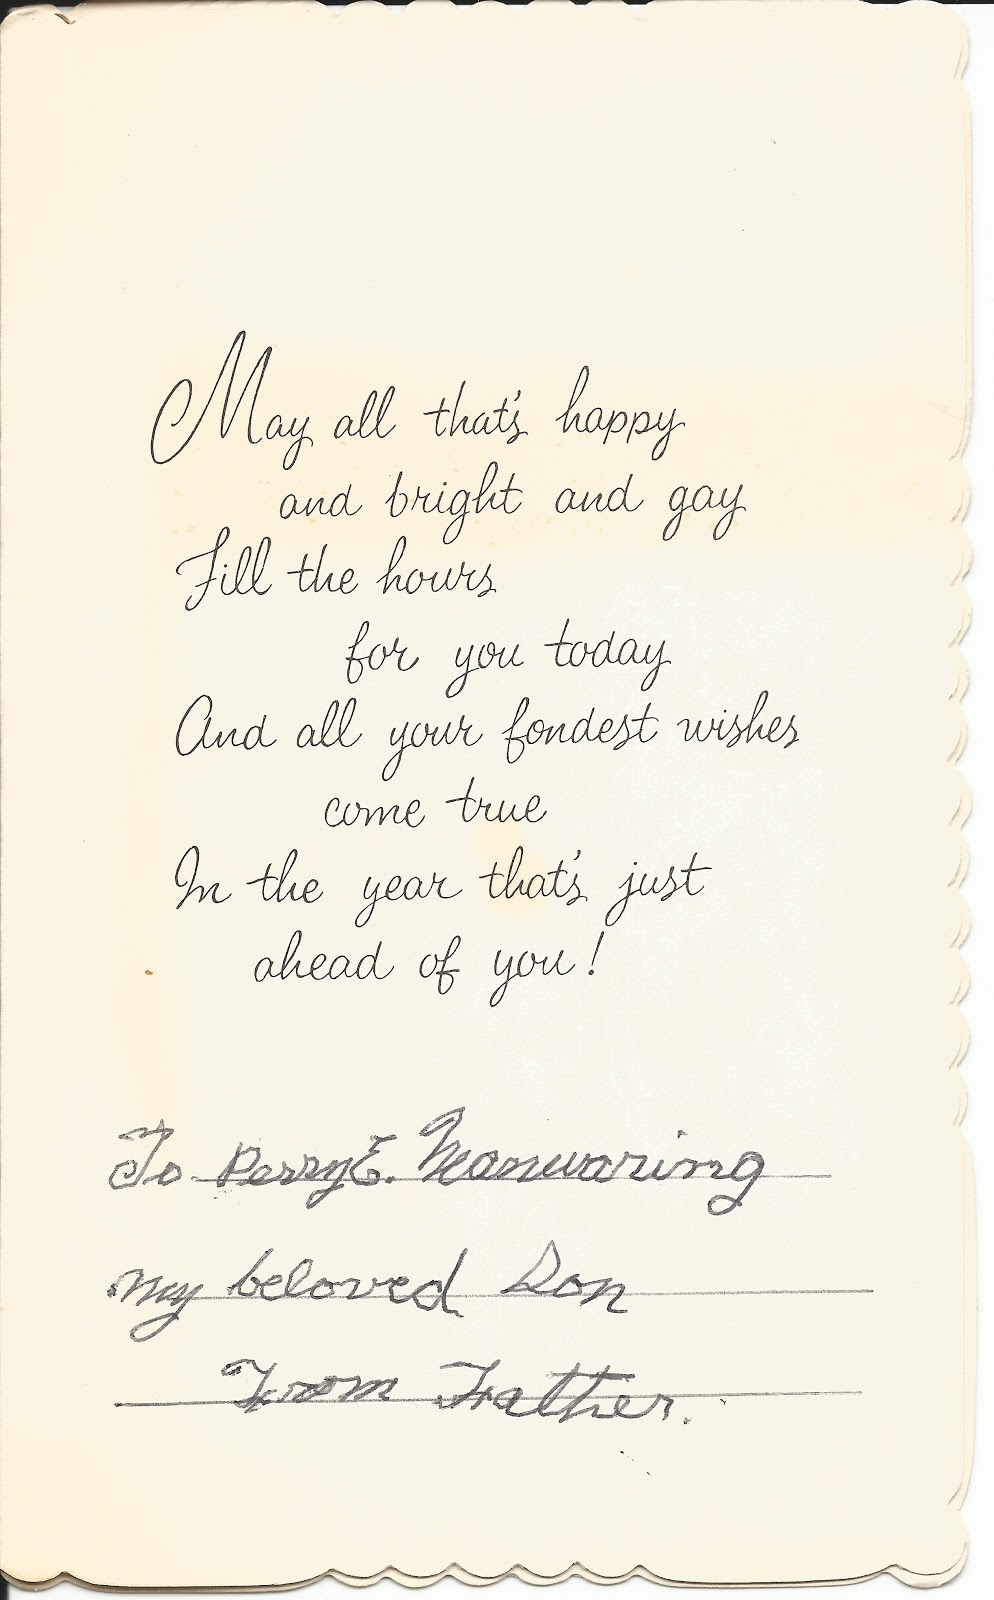 May all that's happy
and bright and gay
Fill the hours
for you today
And all your fondest wishes
come true
In the year that's just
ahead of you!
To Perry E. Manwaring
my beloved Son
From Father.